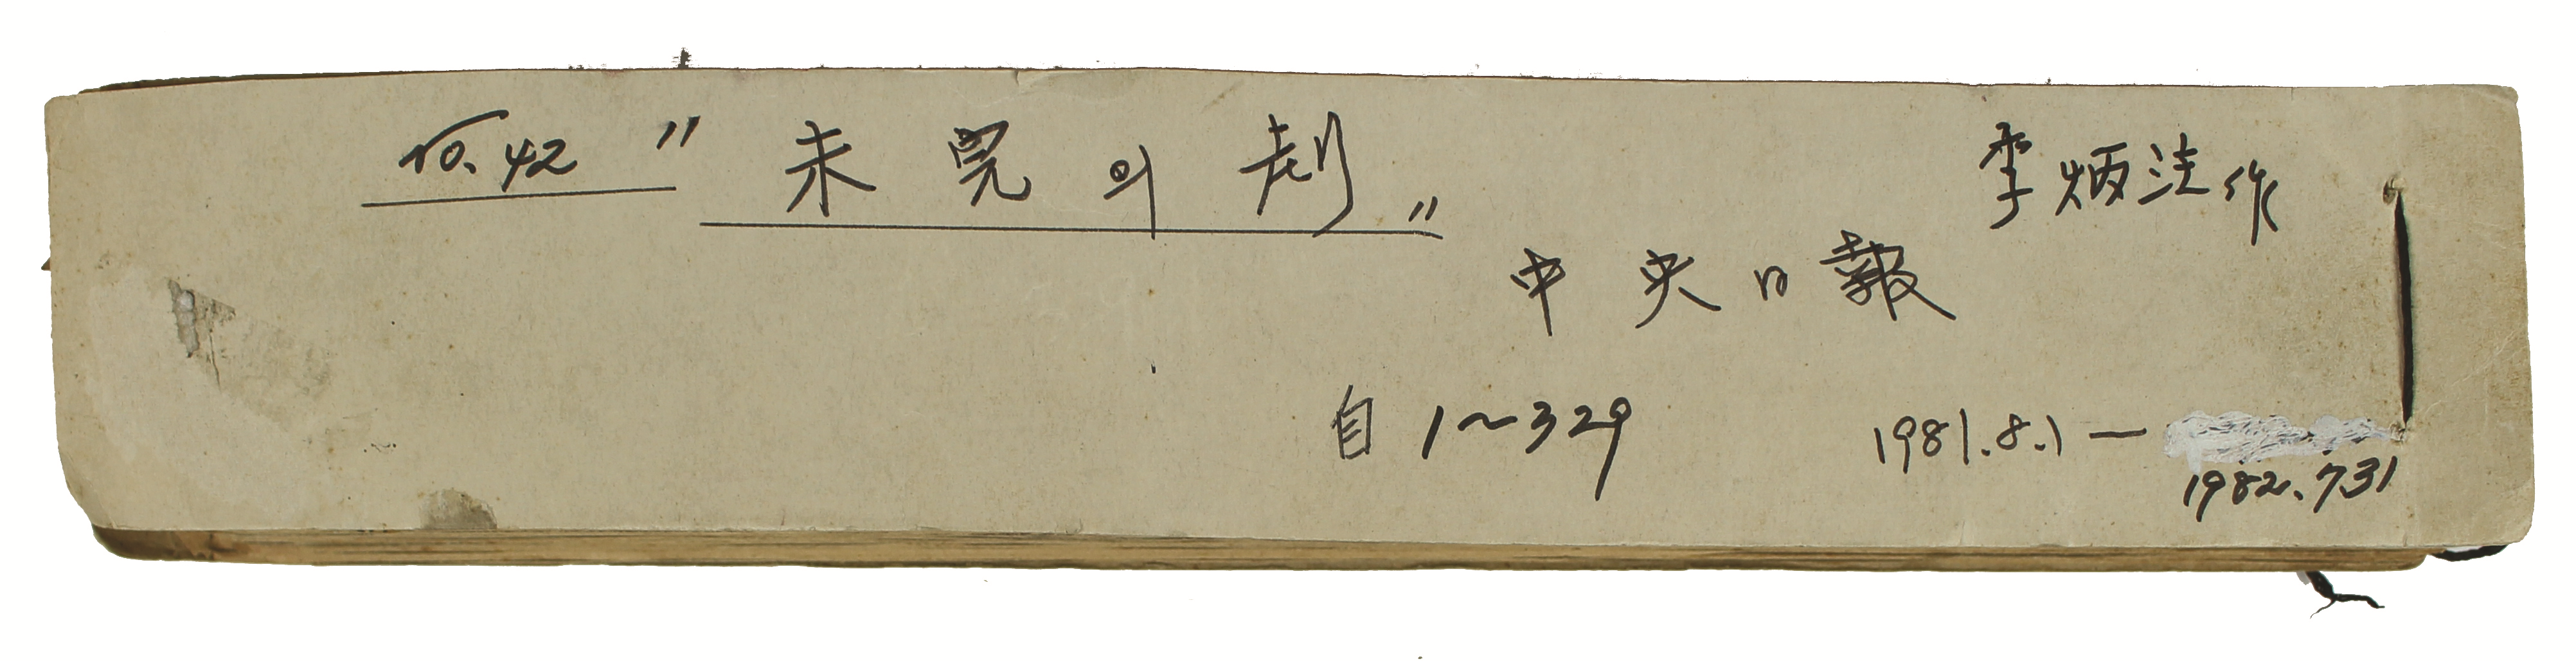 No. 42 "未完의 劇" 李炳注 作
中央日報
自 1~329 1981.8.1 —
1982.7.31